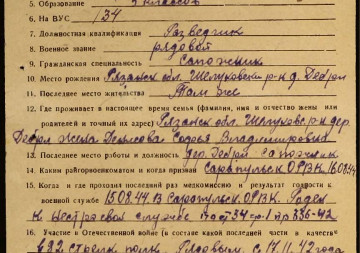 5. Образование 5 классов
6. На ВУС 134
7. Должностная квалификация Разведчик
8. Военное звание рядовой
9. Гражданская специальность Сапожник
10. Место рождения Рязанск. обл. Шелуховский р-н д. Дебри
11. Последнее место жительства Там же
12. Где проживает в настоящее время семья (фамилия, имя и отчество жены или
родителей и точный их адрес) Рязанск обл. Шелуховск р-н дер.
Дебри Жена Софья Владимировна
13. Последнее место работы и должность дер. Дебри сапожник
14. Каким райгорвоенкоматом и когда призван Сарапульск ОРВК 16.08.44
15. Когда и где проходил последний раз медкомиссию и результат годности к
военной службе 15.08.44. В Сарапульск. ОРВК. Годен
к нестроевой службе по ст 34 гр. I пр 336-42
16. Участие в Отечественной войне (в составе какой последней части в качестве
692 стрелк полк. Рядовым. с 17.11.42 года